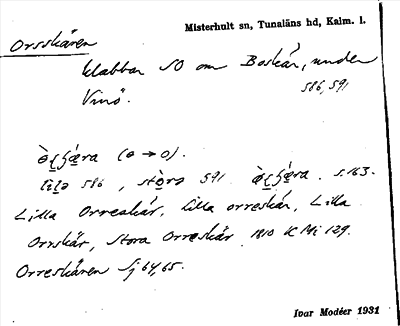 Misterhult sn, Tunaläns hd, Kalm. l.
Orsskären
klabbar SO om Boskär, under
Vinö. 586, 591
(ɵ → o).
586, störa 591 s. 163.
Lilla Orreskär, Lilla orreskär, Lilla
Orrskär, Stora Orreskär 1810 K Mi 129.
Orreskären Sj 64, 65.
Ivar Modéer 1931